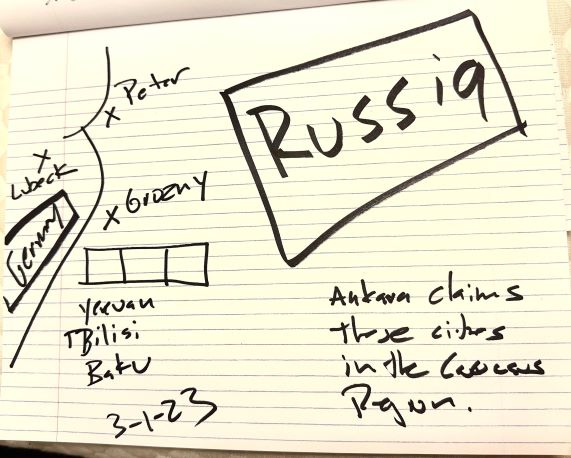 Russia
x Peter
x
Lubeck
Germany
x Grozny
Yeevan
TBilisi
Baku
3-1-23
Ankara claims
these cities
in the Caucasus
Region.